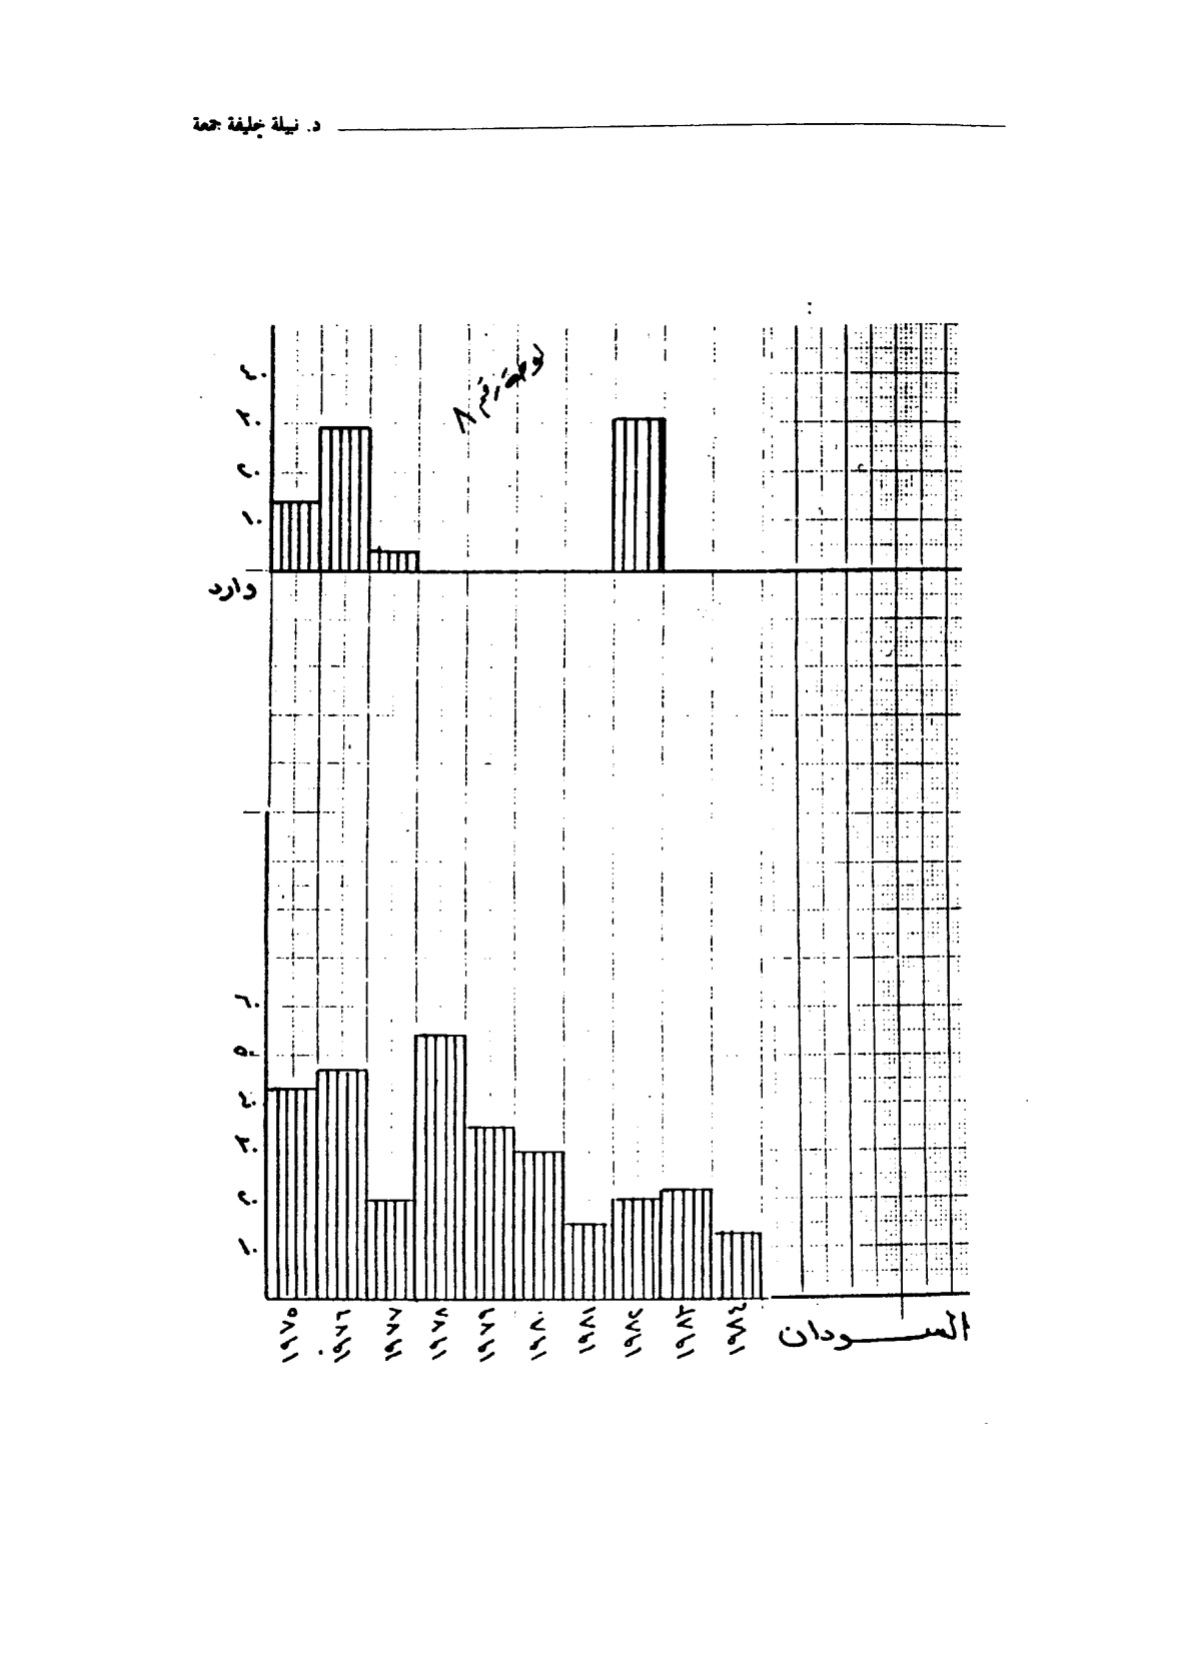 د. نبيلة خليفة جمعة
لوحة رقم ٨
٤٠
٣٠
٢٠
١٠
وارد
٦٠
٥٠
٤٠
٣٠
٢٠
١٠
١٩٧٥ ١٩٧٦ ١٩٧٧ ١٩٧٨ ١٩٧٩ ١٩٨٠ ١٩٨١ ١٩٨٢ ١٩٨٣ ١٩٨٤
الســـودان